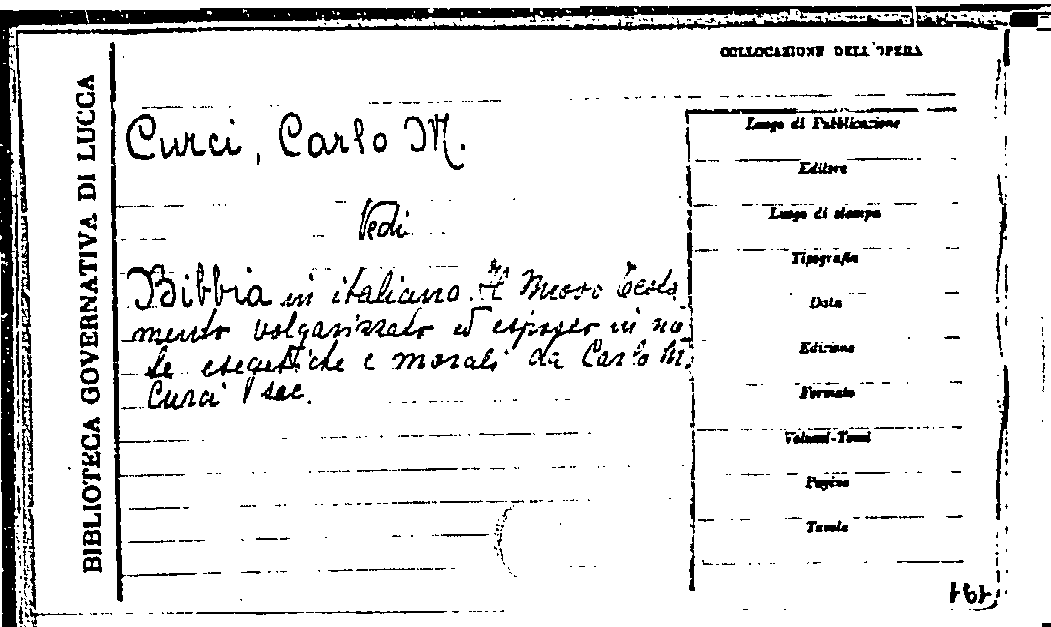 BIBLIOTECA GOVERNATIVA DI LUCCA
COLLOCAZIONE DELL'OPERA
Curci, Carlo M.
Vedi
Bibbia in italiano. Il Nuovo Testa
mento volgarizzato ed esposto in no
te esegetiche e morali da Carlo M.
Curci sac.
Luogo di Pubblicazione
Editore
Luogo di stampa
Tipografia
Data
Edizione
Formato
Volumi-Tomi
Pagine
Tavole